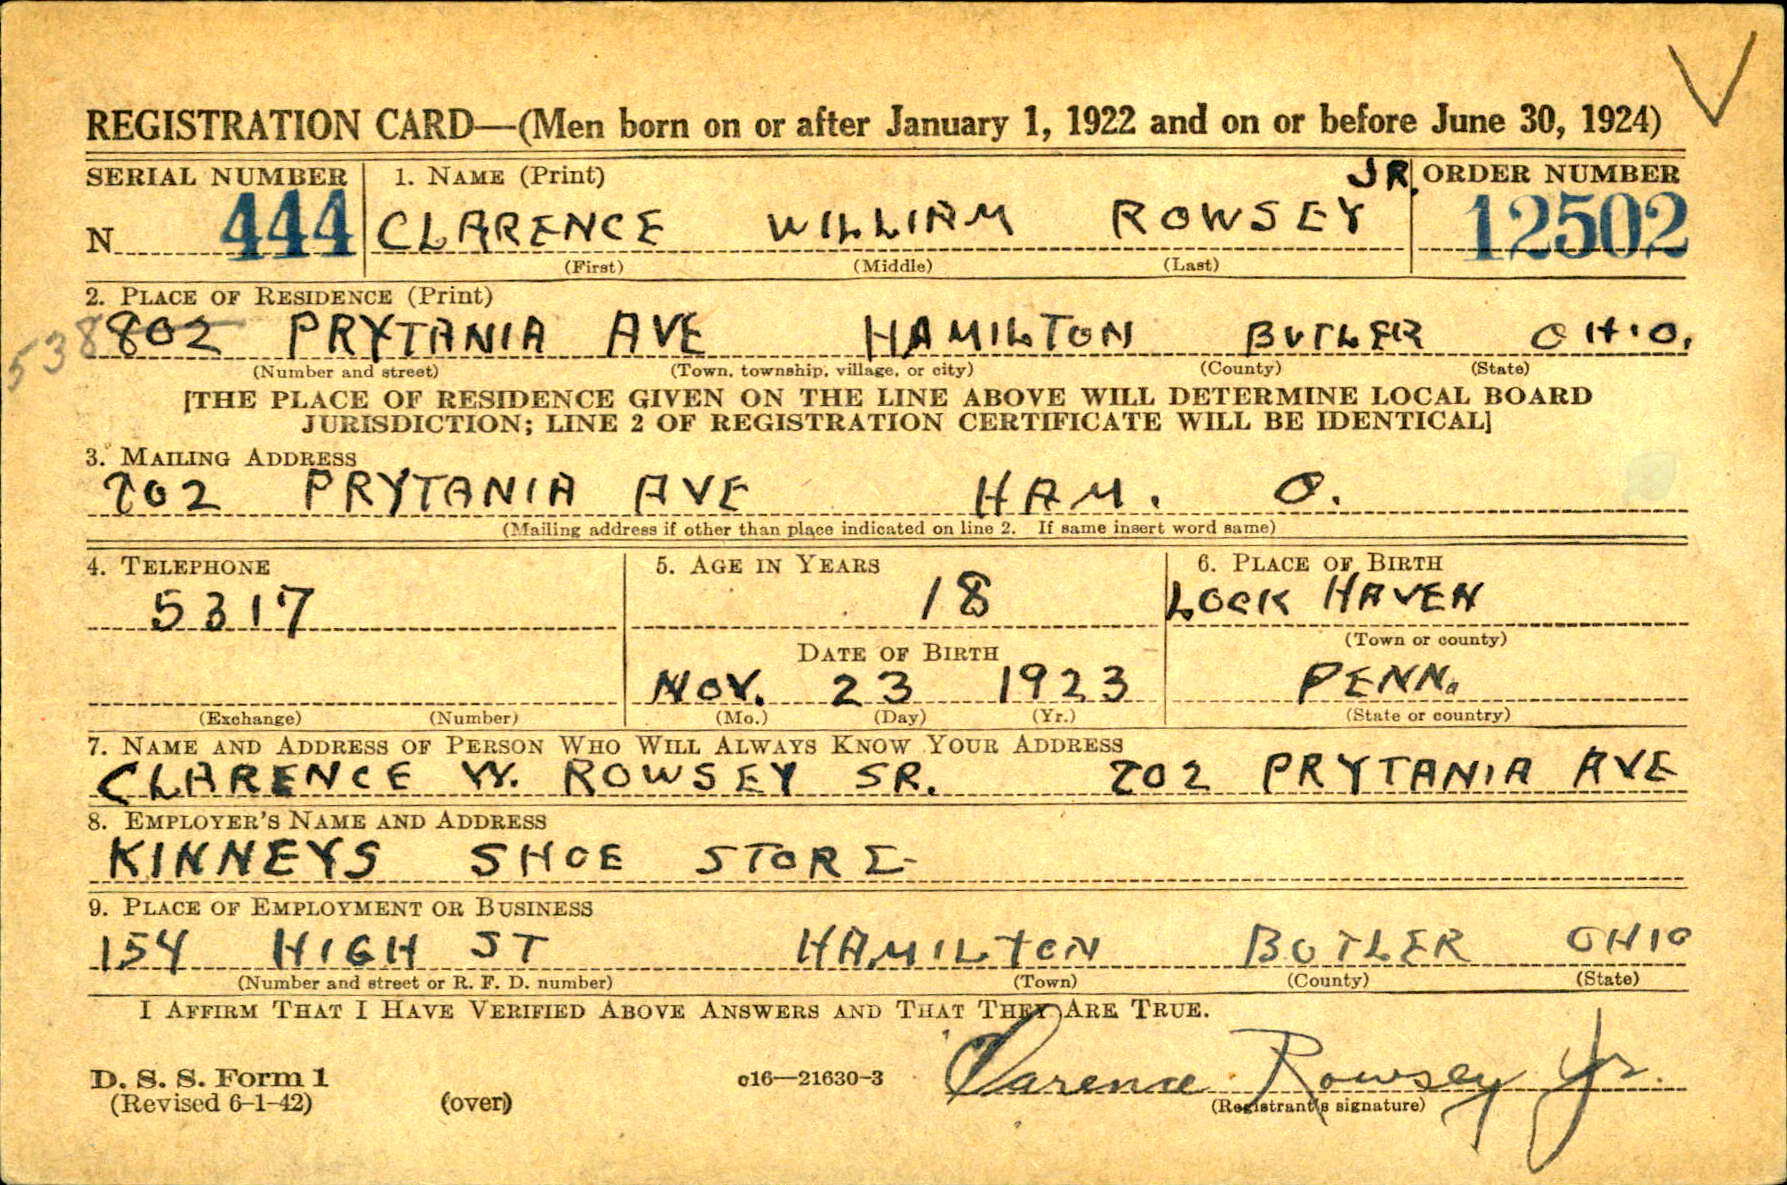 REGISTRATION CARD—(Men born on or after January 1, 1922 and on or before June 30, 1924)
SERIAL NUMBER
1. NAME (Print)
JR.
ORDER NUMBER
N 444
CLARENCE WILLIAM ROWSEY
12502
(First) (Middle) (Last)
2. PLACE OF RESIDENCE (Print)
538 802 PRYTANIA AVE HAMILTON BUTLER OHIO.
(Number and street) (Town, township, village, or city) (County) (State)
[THE PLACE OF RESIDENCE GIVEN ON THE LINE ABOVE WILL DETERMINE LOCAL BOARD
JURISDICTION; LINE 2 OF REGISTRATION CERTIFICATE WILL BE IDENTICAL]
3. MAILING ADDRESS
802 PRYTANIA AVE HAM. O.
(Mailing address if other than place indicated on line 2. If same insert word same)
4. TELEPHONE
5317
(Exchange) (Number)
5. AGE IN YEARS
18
DATE OF BIRTH
NOV. 23 1923
(Mo.) (Day) (Yr.)
6. PLACE OF BIRTH
LOCK HAVEN
(Town or county)
PENN.
(State or country)
7. NAME AND ADDRESS OF PERSON WHO WILL ALWAYS KNOW YOUR ADDRESS
CLARENCE W. ROWSEY SR. 802 PRYTANIA AVE
8. EMPLOYER'S NAME AND ADDRESS
KINNEYS SHOE STORE
9. PLACE OF EMPLOYMENT OR BUSINESS
154 HIGH ST HAMILTON BUTLER OHIO
(Number and street or R. F. D. number) (Town) (County) (State)
I AFFIRM THAT I HAVE VERIFIED ABOVE ANSWERS AND THAT THEY ARE TRUE.
Clarence Rowsey Jr.
D. S. S. Form 1
(Revised 6-1-42)
(over)
c16—21630-3
(Registrant's signature)